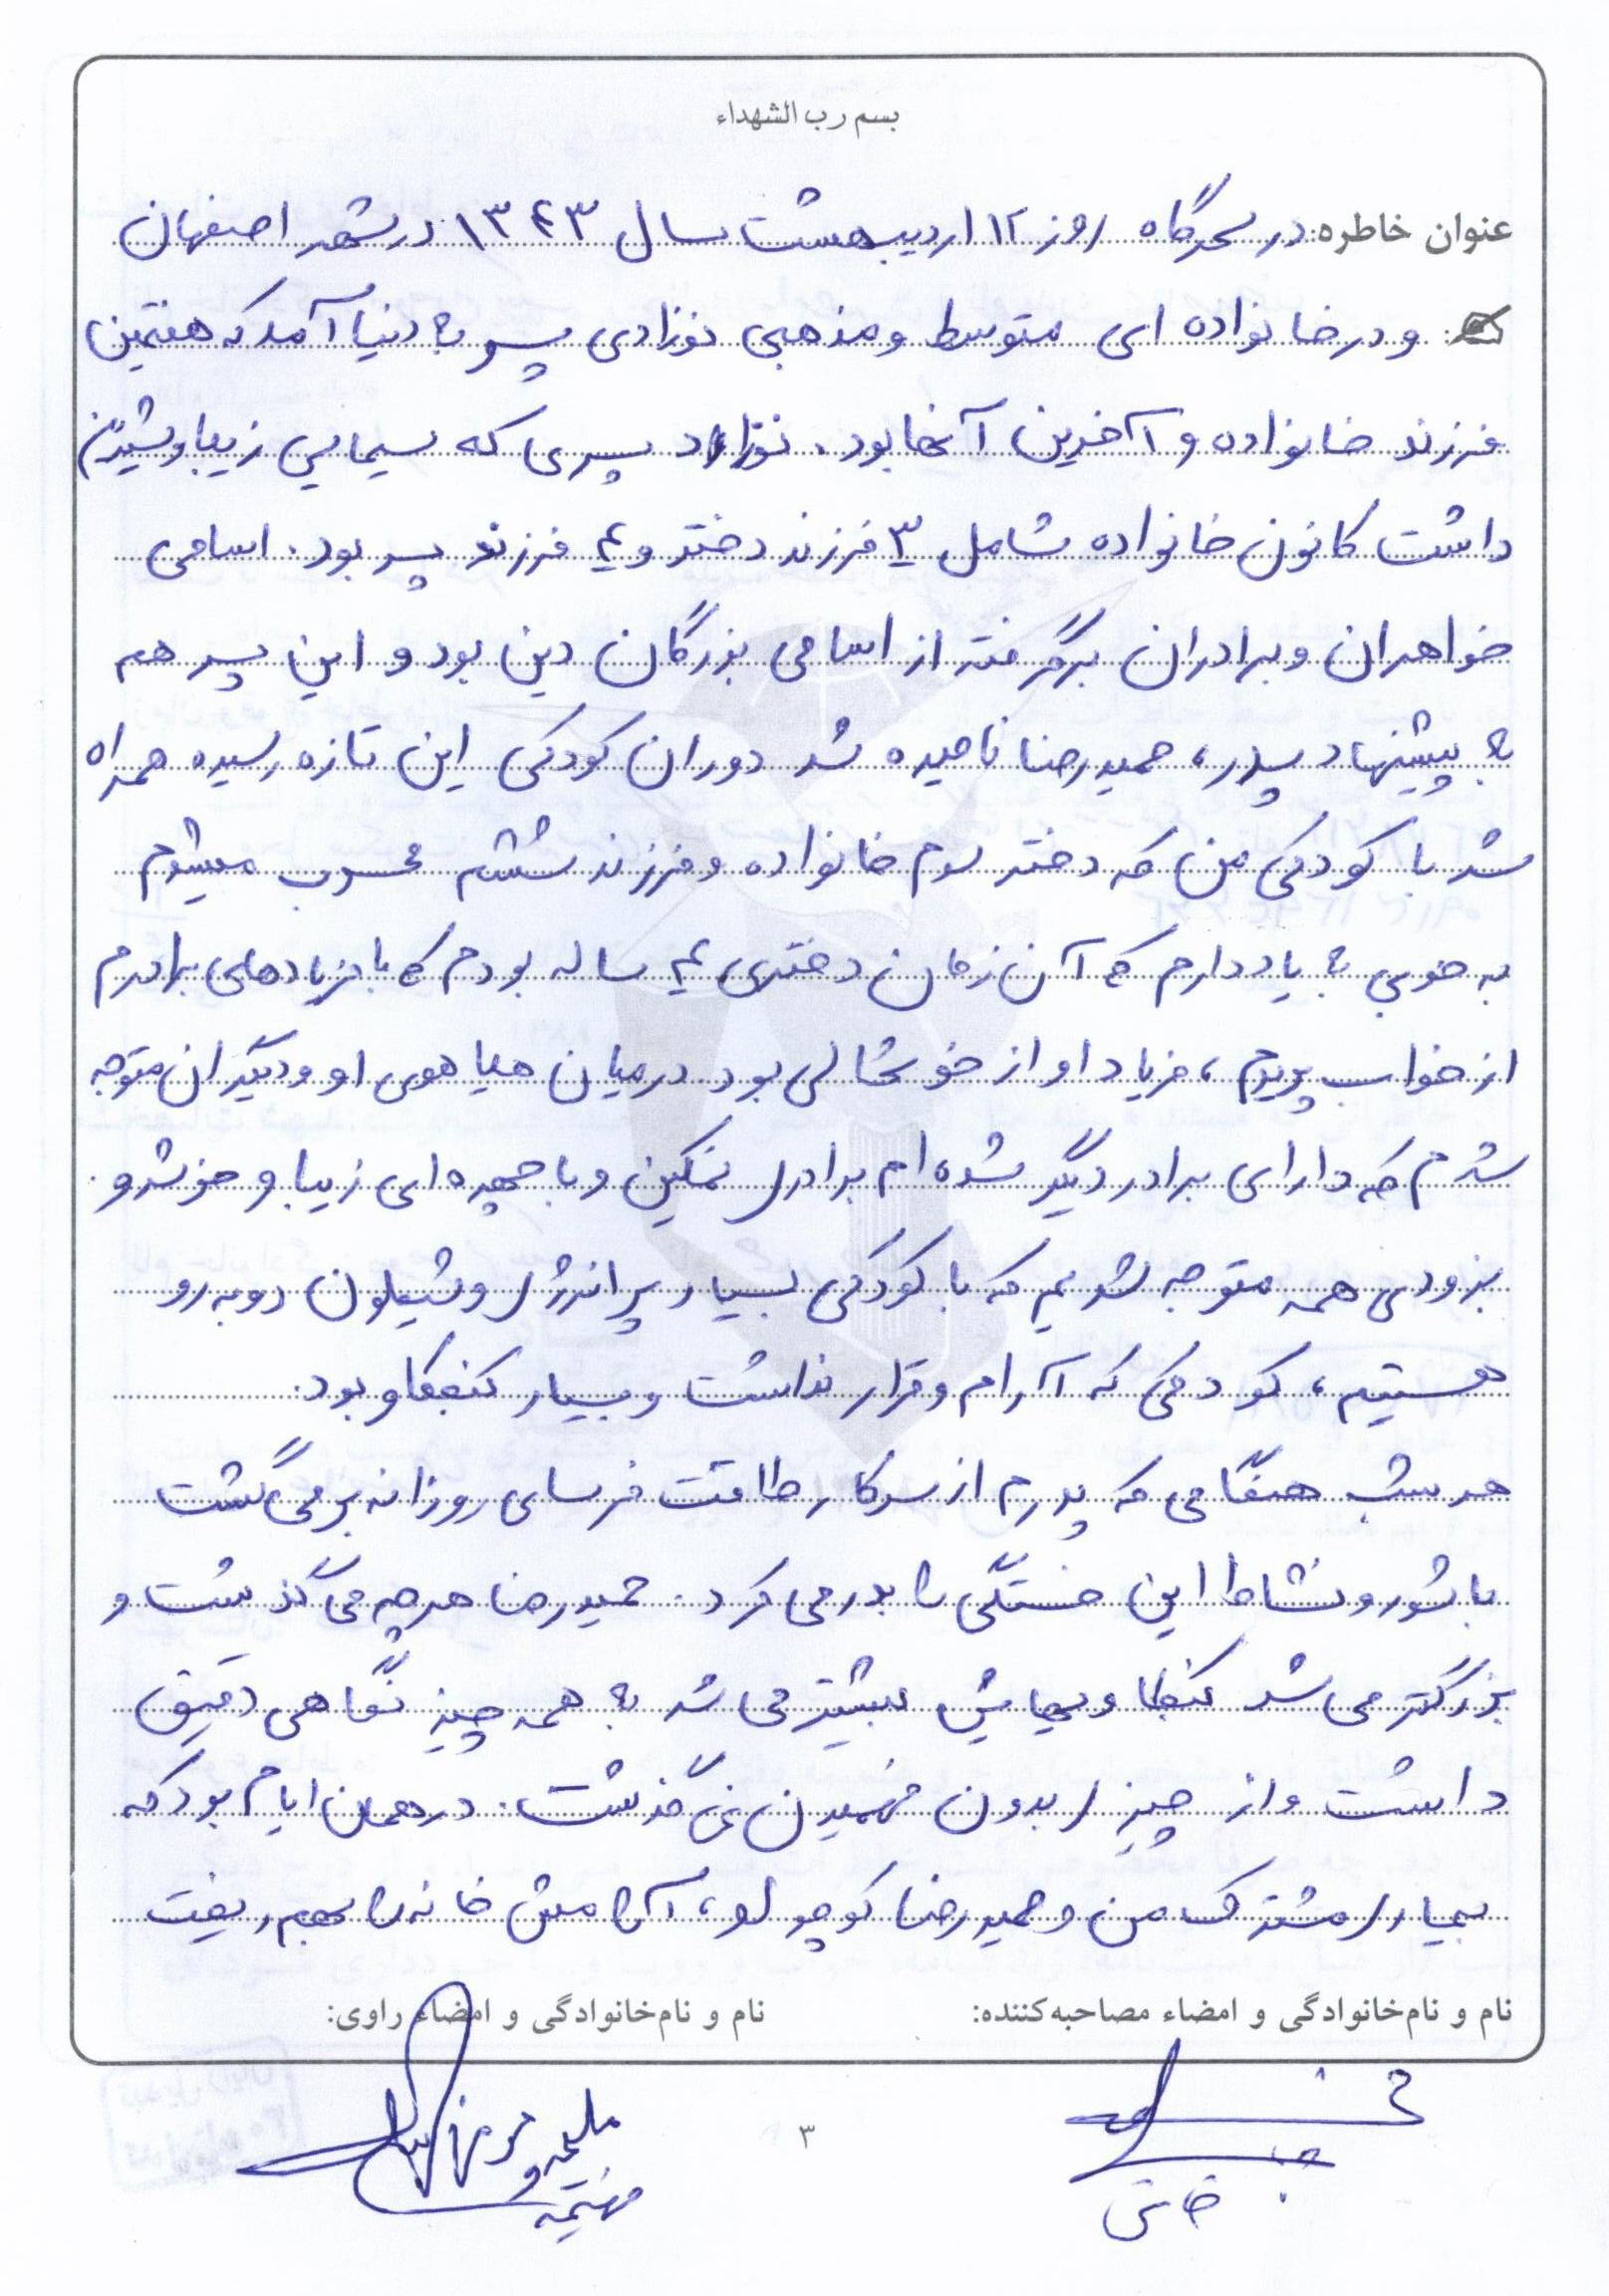 بسم رب الشهداء
عنوان خاطره: در سحرگاه روز ۱۲ اردیبهشت سال ۱۳۴۳ در شهر اصفهان
و در خانواده ای متوسط و مذهبی نوزادی پسر به دنیا آمد که هفتمین
فرزند خانواده و آخرین آنها بود. نوزاد پسری که سیمایی زیبا و شیرین
داشت کانون خانواده شامل ۳ فرزند دختر و ۴ فرزند پسر بود. اسامی
خواهران و برادران برگرفته از اسامی بزرگان دین بود و این پسر هم
به پیشنهاد پدر، حمیدرضا نامیده شد دوران کودکی این تازه رسیده همراه
شد با کودکی من که دختر سوم خانواده و فرزند ششم محسوب میشوم
به خوبی به یاد دارم که آن زمان دختری ۴ ساله بودم که با فریادهای برادرم
از خواب پریدم، فریاد او از خوشحالی بود در میان هیاهوی او و دیگران متوجه
شدم که دارای برادر دیگر شده ام برادری نمکین و با چهره ای زیبا و خوشرو
بزودی همه متوجه شدیم که با کودکی بسیار پر انرژی و شیطون روبه رو
هستیم، کودکی که آرام و قرار نداشت و بسیار کنجکاو بود.
هر شب هنگامی که پدرم از سر کار طاقت فرسای روزانه بر می گشت
با شور و نشاط این خستگی را بدر می کرد. حمیدرضا هر چه می گذشت و
بزرگتر می شد کنجکاویهایش بیشتر می شد به همه چیز نگاهی دقیق
داشت و از چیزی بدون فهمیدن نمی گذشت. در همان ایام بود که
بیماری مشترک من و حمیدرضا کوچولو، آرامش خانه را بهم ریخت
نام و نام‌خانوادگی و امضاء مصاحبه‌کننده:
نام و نام‌خانوادگی و امضاء راوی:
ملیحه
۳